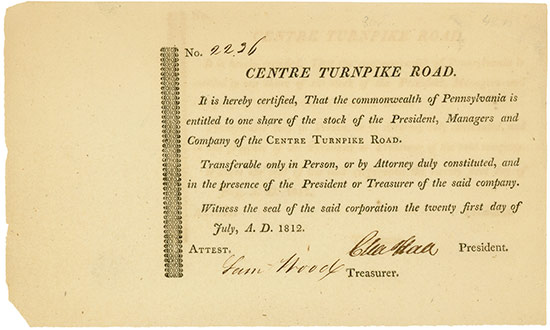 No. 2236
CENTRE TURNPIKE ROAD.
It is hereby certified, That the commonwealth of Pennsylvania is
entitled to one share of the stock of the President, Managers and
Company of the CENTRE TURNPIKE ROAD.
Transferable only in Person, or by Attorney duly constituted, and
in the presence of the President or Treasurer of the said company.
Witness the seal of the said corporation the twenty first day of
July, A. D. 1812.
ATTEST, President.
Sam Wood Treasurer.